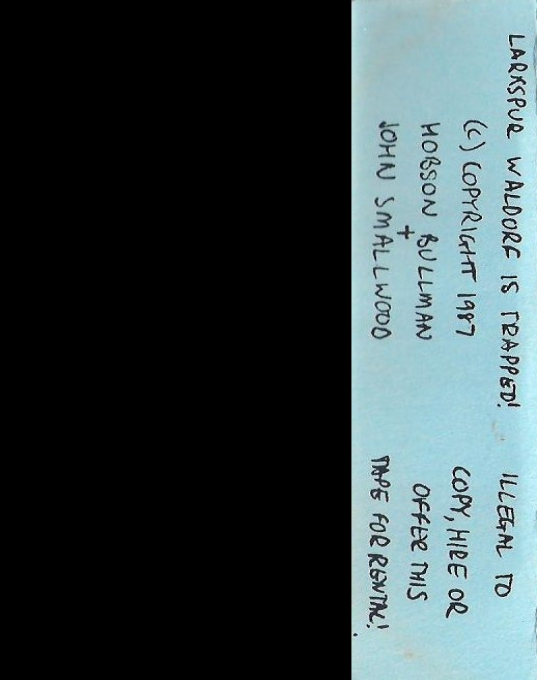 LARKSPUR WALDORF IS TRAPPED!
(C) COPYRIGHT 1987
HOBSON BULLMAN
+
JOHN SMALLWOOD
ILLEGAL TO
COPY, HIRE OR
OFFER THIS
TAPE FOR RENTAL!